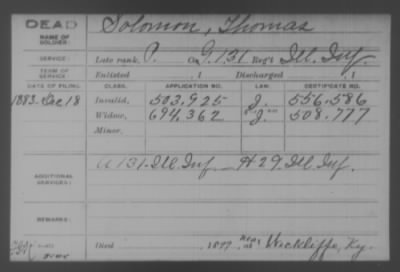 DEAD
NAME OF SOLDIER:
Solomon, Thomas
SERVICE:
Late rank, P. Co G. 131 Reg't Ill. Inf.
TERM OF SERVICE:
Enlisted , 1 Discharged , 1
DATE OF FILING. CLASS. APPLICATION NO. LAW. CERTIFICATE NO.
1883. Dec 18 Invalid, 503,925 J. 556,586
Widow, 694,362 J. 508,777
Minor,
ADDITIONAL SERVICES:
A 131. Ill. Inf. H 29. Ill. Inf.
REMARKS:
Died 18 near at Wickliffe, Ky.